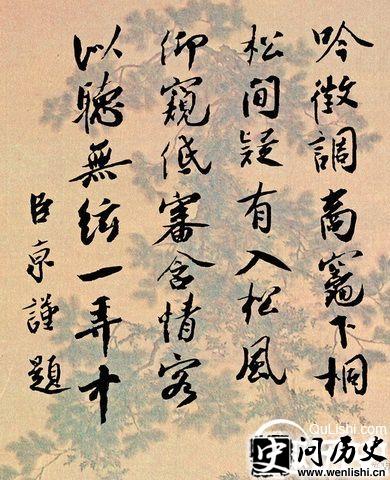 吟徵調商竈下桐
松間疑有入松風
仰窺低審含情客
似聽無絃一弄中
臣京謹題
QuLishi.com
史 问历史
www.wenlishi.cn